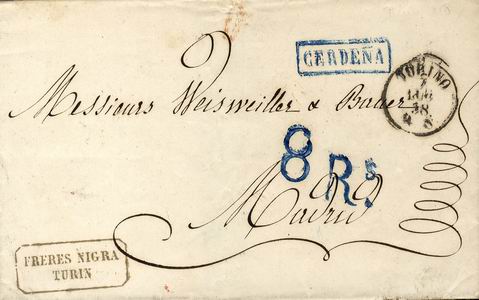 CERDEÑA
TORINO
7
58
Messieurs Weisweiller & Bauer
8 Rs.
Madrid
FRERES NIGRA
TURIN